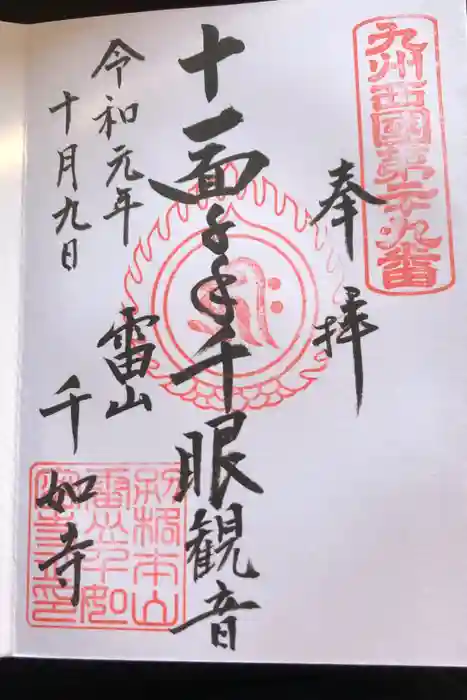 九州西國第二十九番
奉拝
十一面千手千眼観音
雷山
千如寺
令和元年
十月九日
別格本山
雷山千如